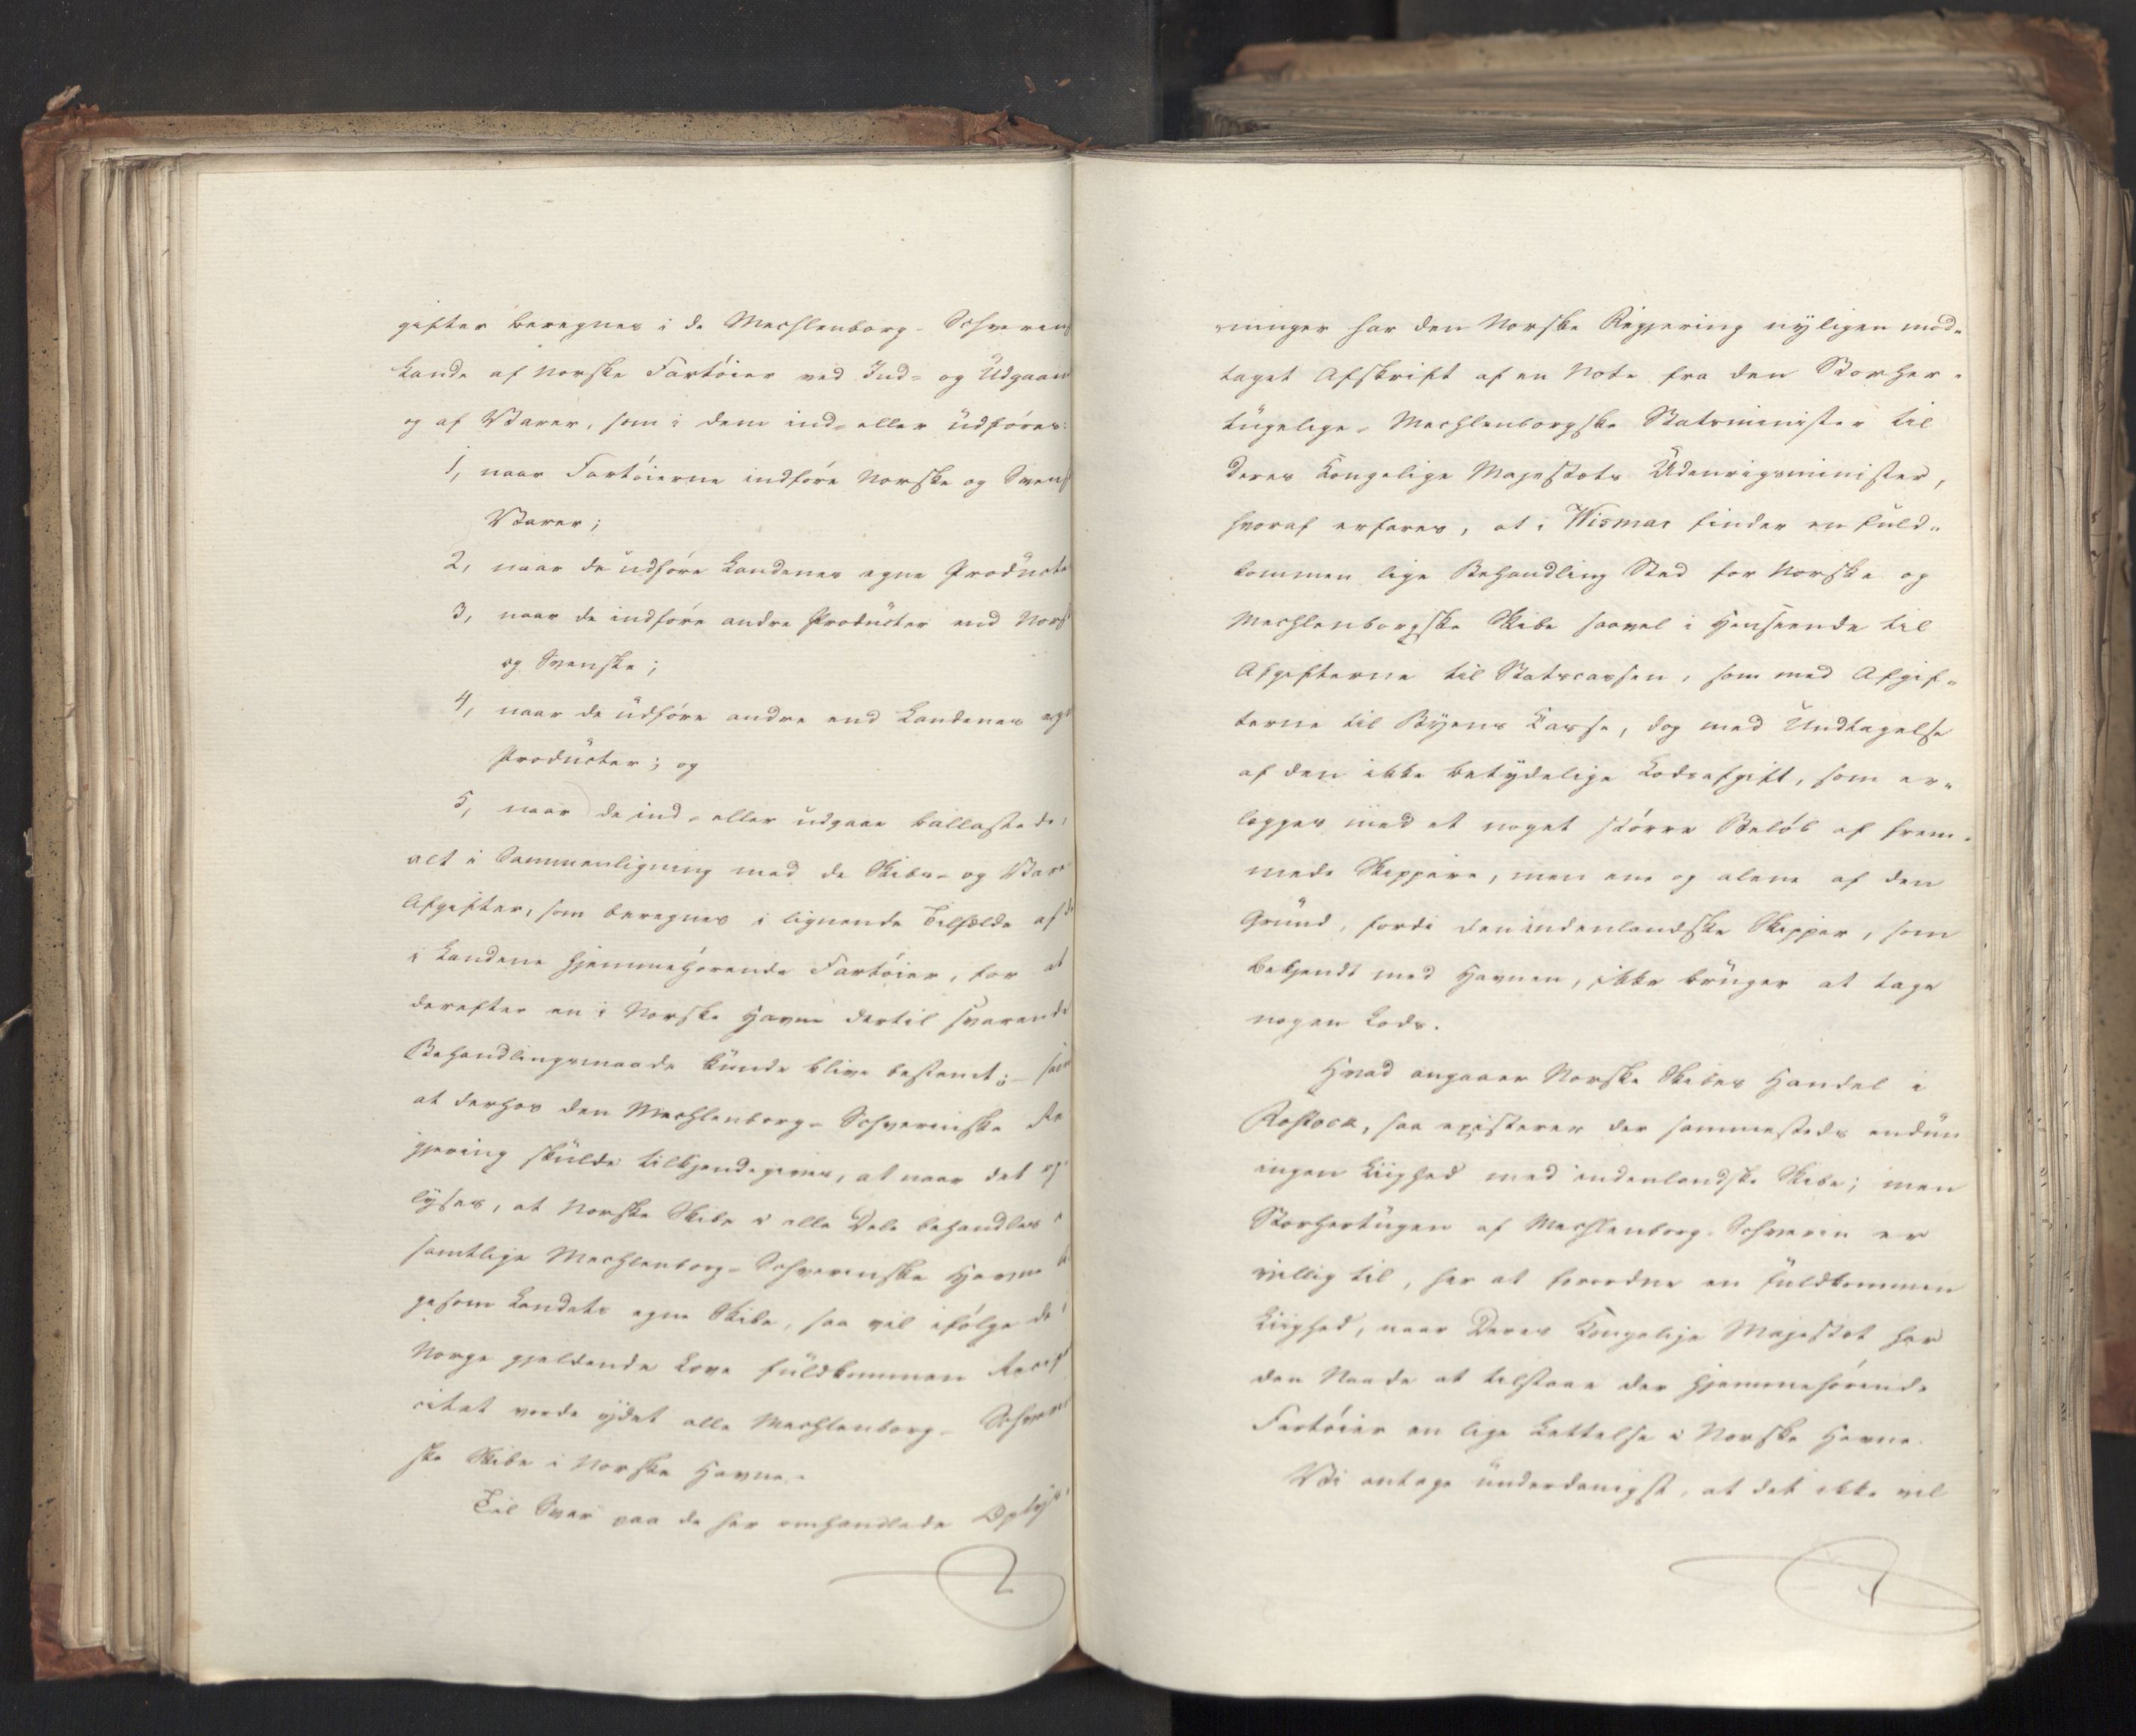 gifter beregnes i de Mechlenborg-Schverins
Lande af Norske Fartøier ved Ind- og Udgaaen
og af Varer, som i dem ind- eller udføres:
1, naar Fartøierne indføre Norske og Svensk
Varer;
2, naar de udføre Landenes egne Producte
3, naar de indføre andre Producter end Norsk
og Svenske;
4, naar de udføre andre end Landenes egn
Producter; og
5, naar de ind- eller udgaae ballastede,
alt i Sammenligning med de Skibs- og Vare
Afgifter, som beregnes i lignende Tilfælde af de
i Landene hjemmehørende Fartøier, for at
derefter en i Norske Havne dertil svarende
Behandlingsmaade kunde blive bestemt; – sam
at derhos den Mechlenborg-Schverinske Re
gjering skulde tilkjendegives, at naar det op
lyses, at Norske Skibe i alle Dele behandles i
samtlige Mechlenborg-Schverinske Havne li
gesom Landets egne Skibe, saa vil ifølge de i
Norge gjeldende Love fuldkommen Recipr
citet vorde ydet alle Mechlenborg-Schverin
ske Skibe i Norske Havne.
Til Svar paa de her omhandlede Oplys
ninger har den Norske Regjering nyligen mod-
taget Afskrift af en Note fra den Storher-
tugelige-Mechlenborgske Statsminister til
Deres Kongelige Majestæts Udenrigsminister,
hvoraf erfares, at i Wismar finder en fuld-
kommen lige Behandling Sted for Norske og
Mechlenborgske Skibe saavel i Henseende til
Afgifterne til Statscassen, som med Afgif-
terne til Byens Kasse, dog med Undtagelse
af den ikke betydelige Lodsafgift, som er-
lægges med et noget større Beløb af frem-
mede Skippere, men ene og alene af den
Grund, fordi den indenlandske Skipper, som
bekjendt med Havnen, ikke bruger at tage
nogen Lods.
Hvad angaaer Norske Skibes Handel i
Rostock, saa existerer der sammesteds endnu
ingen Liighed med indenlandske Skibe; men
Storhertugen af Mechlenborg-Schverin er
villig til, her at forordne en fuldkommen
Liighed, naar Deres Kongelige Majestæt har
den Naade at tilstaae der hjemmehørende
Fartøier en lige Lettelse i Norske Havne.
Vi antage underdanigst, at det ikke vil